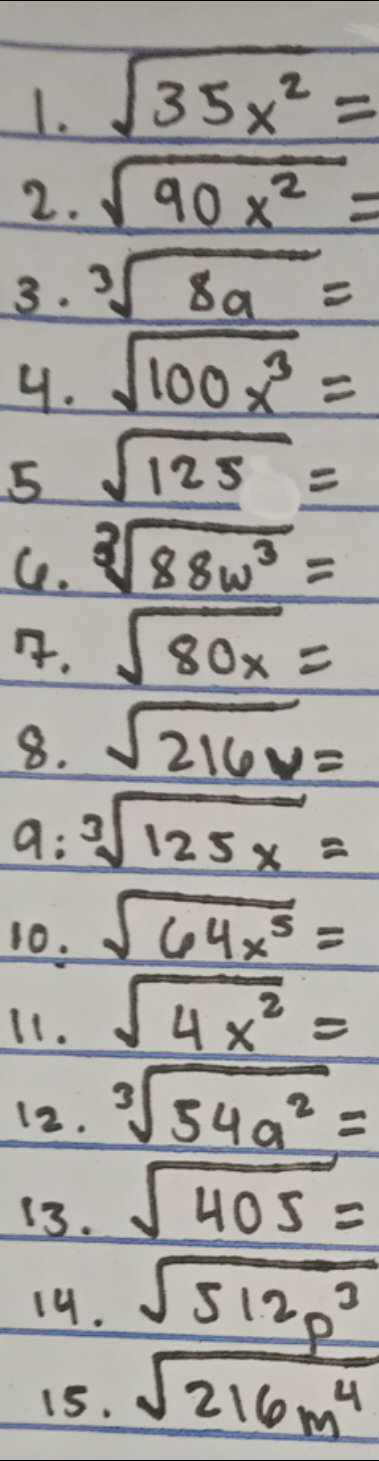 1. √35x² =
2. √90x² =
3. ∛8a =
4. √100x³ =
5 √125 =
6. ∛88w³ =
7. √80x =
8. √216v =
9. ∛125x =
10. √64x⁵ =
11. √4x² =
12. ∛54a² =
13. √405 =
14. √512p³
15. √216m⁴